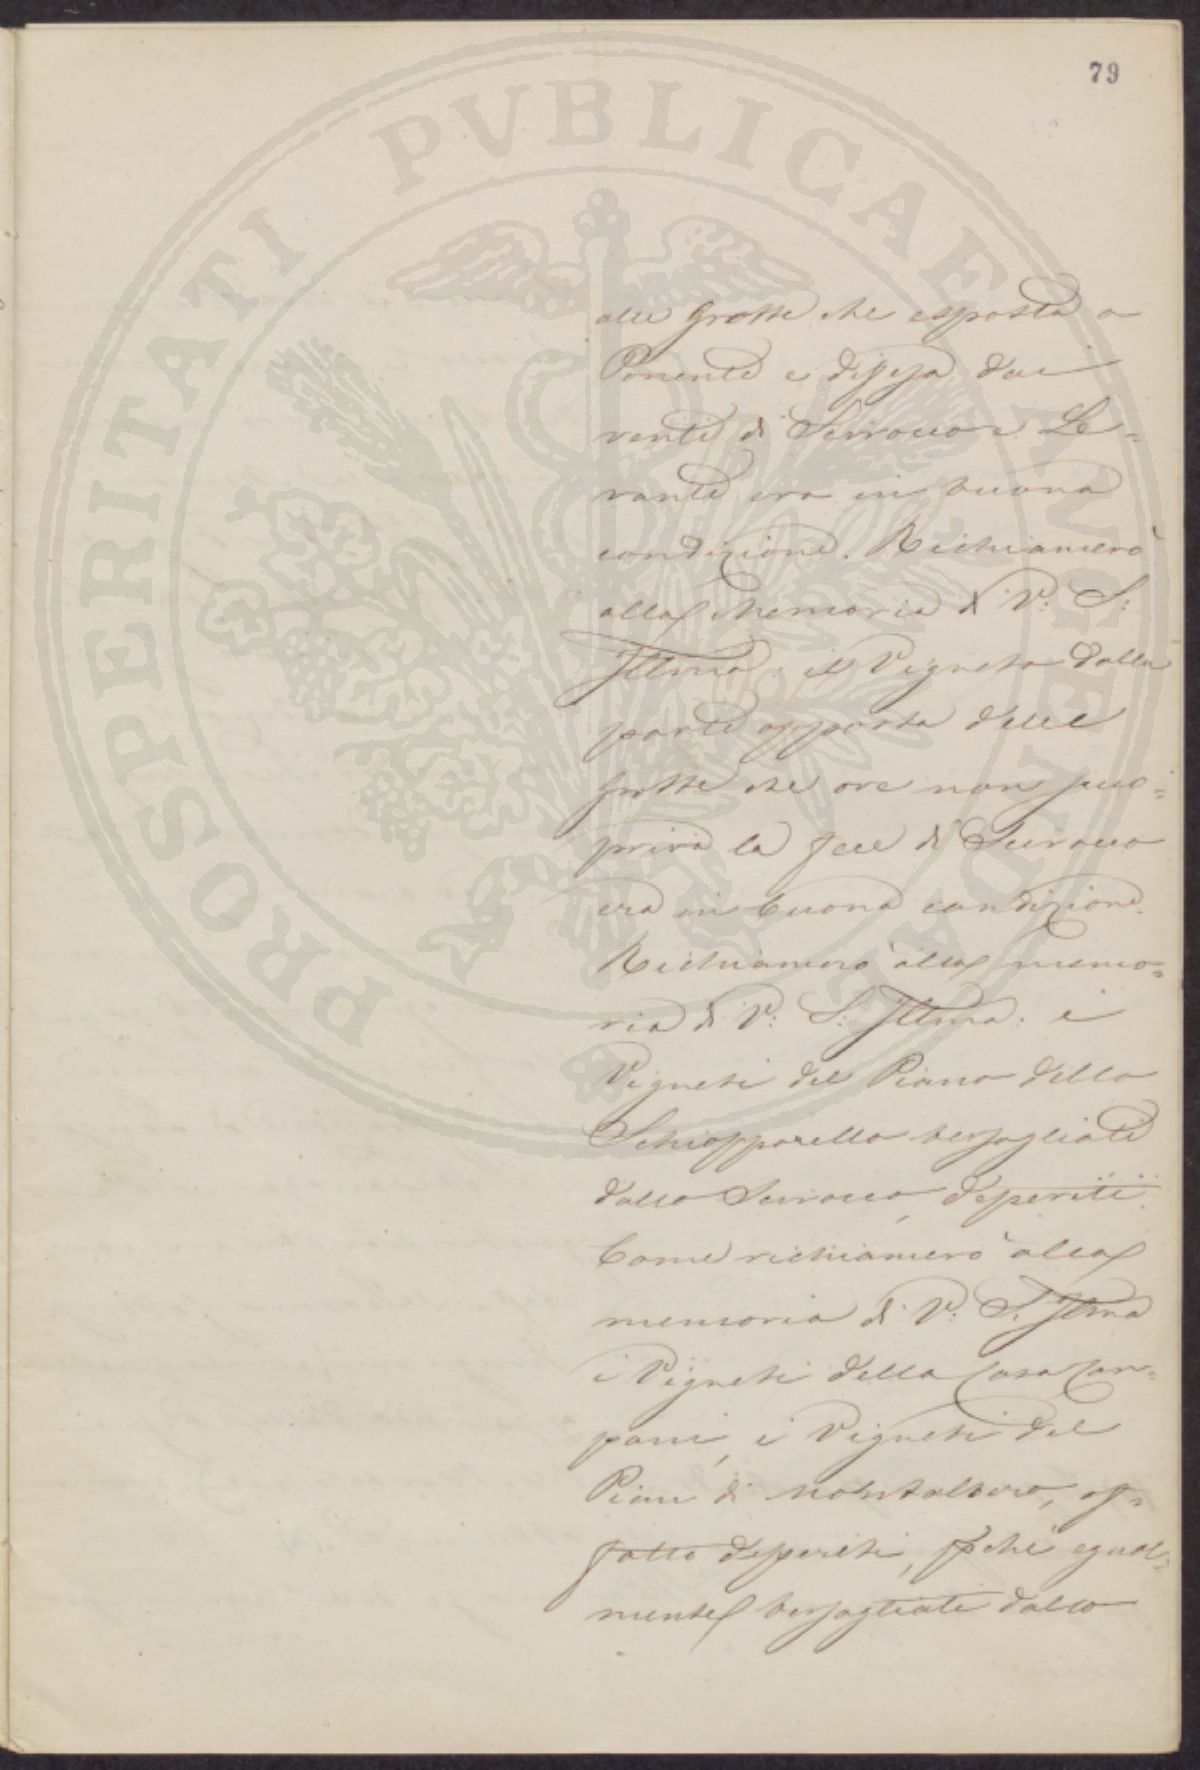 79
PROSPERITATI PVBLICAE AVGENDAE
alle Grotte che esposta a
Ponente e difesa dai
venti di Scirocco e Le=
vante era in buona
condizione. Richiamerò
alla Memoria di V: S:
Illma: il Vigneto dalla
parte opposta delle
grotte che ove non
la di Scirocco
era in buona condizione.
Richiamerò alla memo=
ria di V: S: Illma: i
Vigneti del Piano dello
Schiopparello bersagliati
dallo Scirocco, deperiti.
Come richiamerò alla
memoria di V: S: Illma
i Vigneti della Casa Cam=
pani, i Vigneti del
Piano di af=
fatto deperiti, pchè egual=
mente bersagliati dallo